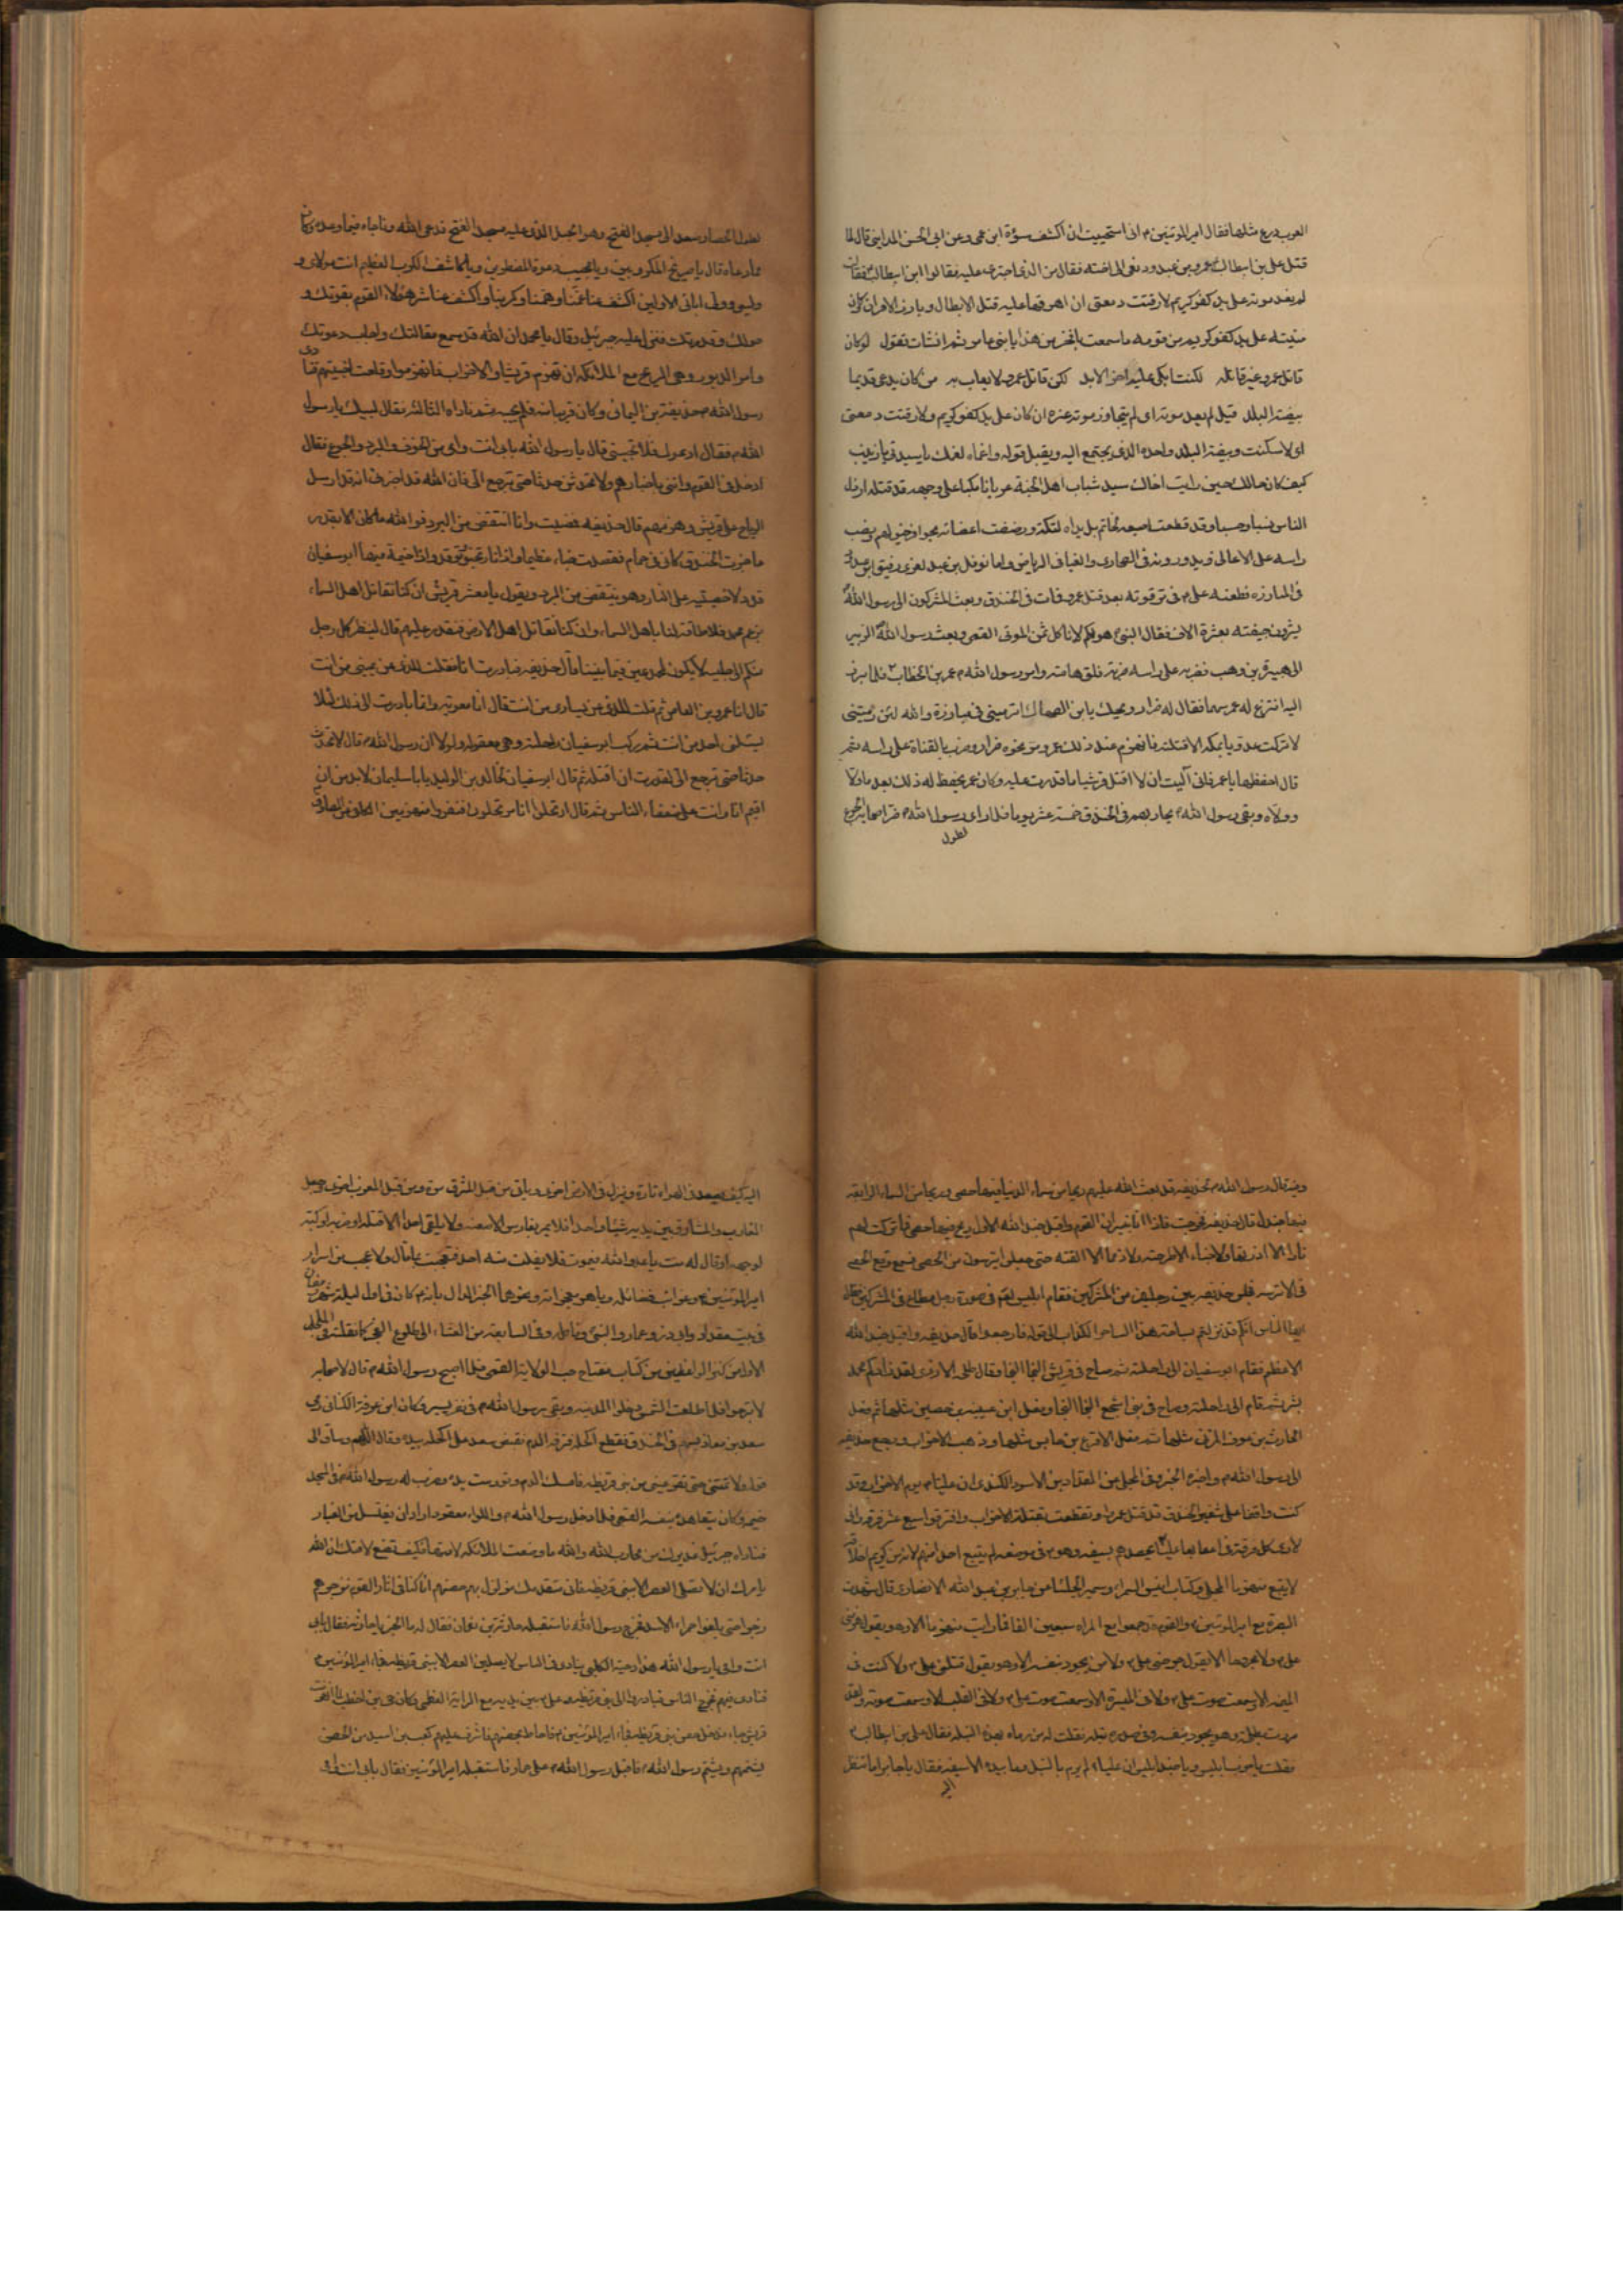 العرب درع مثلها فقال امير المؤمنين ع انى استحييت ان اكشف سوءة ابن عمى وعن ابى الحسن المداينى قال لما
قتل على بن ابيطالب عمرو بن عبدود نعى الى اخته فقال من الذى اجترى عليه فقالوا ابن ابيطالب فقالت
لم يعد موته على يد كفو كريم لا رقئت دمعتى ان اهرقتها عليه قتل الابطال وبارز الاقران وكان
منيته على يد كفو كريم من قومه ما سمعت بافخر من هذا يا بنى عامر ثم انشات تقول لو كان
قاتل عمرو غير قاتله لكنت ابكى عليه اخر الابد لكن قاتل عمرو لا يعاب به من كان يدعى قديما
بيضة البلد قيل لم يعد موته اى لم يتجاوز موته عنه ان كان على يد كفو كريم ولا رقئت دمعتى
اى لا سكنت وبيضة البلد واحده الذى يجتمع اليه ويقبل قوله
كيف كان حالك حين رايت اخاك سيد شباب اهل الجنة عريانا مكبا على وجهه قد قتله ارذل
الناس نسبا وحسبا وقد قطعت اصبعه لخاتم بل يداه لتكة ورضضت اعضائه بحوافر خيولهم ونصب
راسه على الاعالى ويدورونه فى الصحارى والفيافى الرياض واما نوفل بن عبد العزى رفيق ابن عبدود
فى المبارزه فطعنه على ع فى ترقوته بعد قتل عمرو فمات فى الخندق وبعث المشركون الى رسول الله
يشرون جيفته بعشرة الاف فقال النبى هو لكم لا ناكل ثمن الموتى القصى وبعث رسول الله الزبير
الى هبيرة بن وهب فضربه على راسه ضربة فلق هامته وامر رسول الله ص عمر بن الخطاب فلما برز
اليه انتزع له عمر سهما فقال له ضرار ويحك يابن الصهاك اترمينى فى مبارزة والله لئن رميتنى
لا تركت عدويا بمكه الا قتلته فانهزم عند ذلك عمر ومر نحوه ضرار وضرب بالقناة على راسه ثم
قال احفظها يا عمر فانى آليت ان لا اقتل قرشيا ما قدرت عليه وكان عمر يحفظ له ذلك بعد ما ولى
وولاه وبقى رسول الله ص يحاربهم فى الخندق خمسة عشر يوما فلما راى رسول الله ص من اصحابه الجزع
لطول
لطول الحصار صعد الى مسجد الفتح وهو الجبل الذى عليه مسجد الفتح فدعى الله وناجاه فيما وعده وكان
مما دعاه قال يا صريخ المكروبين ويا مجيب دعوة المضطرين ويا كاشف الكرب العظيم انت مولاى و
وليى وولى ابائى الاولين اكشف عنا غمنا وهمنا وكربنا واكشف عنا شر هؤلاء القوم بقوتك و
حولك وقدرتك فنزل عليه جبرئيل وقال يا محمد ان الله قد سمع مقالتك واجاب دعوتك
وامر الدبور وهى الريح مع الملائكه ان تهزم قريشا والاحزاب فانهزموا وقلعت اخبيتهم فنادى
رسول الله ص حذيفة بن اليمانى وكان قريبا منه فلم يجبه ثم ناداه الثالثة فقال لبيك يا رسول
الله ص فقال ادعوك فلا تجيبنى قال يا رسول الله بابى انت وامى من الخوف والبرد والجوع فقال
ادخل فى القوم وائتنى باخبارهم ولا تحدثن حدثا حتى ترجع الى فان الله قد اخبرنى انه قد ارسل
الرياح على قريش وهزمهم قال حذيفه فمضيت وانا انتفض من البرد فوالله ما كان الا بقدر
ما جزت الخندق كانى فى حمام فقصدت خباء عظيما فاذا نار تخبو وتوقد واذا خيمة فيها ابو سفيان
قد دلا خصيتيه على النار وهو ينتفض من البرد ويقول يا معشر قريش ان كنا نقاتل اهل السماء
بزعم محمد فلا طاقة لنا باهل السماء وان كنا نقاتل اهل الارض فنقدر عليهم قال لينظر كل رجل
منكم الى جليسه لا يكون لمحمد عين فيما بيننا قال حذيفه فبادرت انا فقلت للذى عن يمينى من انت
قال انا عمرو بن العاص ثم قلت للذى عن يسارى من انت قال انا معويه وانما بادرت الى ذلك لئلا
يسئلنى احد من انت ثم ركب ابو سفيان راحلته وهى معقوله ولولا ان رسول الله ص قال لا تحدث
حدثا حتى ترجع الى لقدرت ان اقتله ثم قال ابو سفيان لخالد بن الوليد يا با سليمان لا بد من ان
اقيم انا وانت على ضعفاء الناس ثم قال ارتحلوا انا مرتحلون ففروا منهزمين
وفيه قال رسول الله ص لحذيفه قد بعث الله عليهم ريحا من سماء الدنيا فيها حصى وريحا من السماء الرابعة
فيها جندل قال حذيفه فخرجت فاذا انا بنيران القوم واقبل جند الله الاول ريح فيها حصى فما تركت لهم
نارا الا اذرتها ولا خباء الا طرحته ولا رمحا الا القته حتى جعلوا يتترسون من الحصى فسمع وقع الحصى
فى الاترسه فجلس حذيفه بين رجلين من المشركين فقام ابليس لهم فى صورة رجل مطاع فى المشركين فقال
ايها الناس انكم قد نزلتم بساحة هذا الساحر الكذاب الى قوله فارجعوا قال حذيفه واقبل جند الله
الاعظم فقام ابو سفيان الى راحلته ثم صاح فى قريش النجا النجا وقال طلحة الازدى لقد زادكم محمد
بشر ثم قام الى راحلته وصاح فى بنى اشجع النجا النجا وفعل ابن عيينة بن حصين مثلها ثم فعل
الحارث بن عوف المزنى مثلها ثم فعل الاقرع بن حابس مثلها وذهب الاحزاب ورجع حذيفه
الى رسول الله ص واخبره الخبر وفى المجلى عن المقداد بن الاسود الكندى ان عليا ع يوم الاحزاب وقد
كنت واقفا على شفير الخندق قد قتل عمروا وتقطعت بقتله الاحزاب وافترقوا سبع عشر فرقة وانى
لارى كل فرقة فى اعقابها عليا يحصدهم بسيفه وهو ع فى موضعه لم يتبع احدا منهم لانه من كريم اخلاقه
لا يتبع منهزما المجلى وكتاب انيس السمراء وسمير الجلساء عن جابر بن عبد الله الانصارى قال شهدت
البصرة مع امير المؤمنين ع والقوم قد جمعوا مع المراه سبعين الفا فما رايت منهزما الا وهو يقول هزمنى
على ع ولا مجروحا الا يقول جرحنى على ع ولا من يجود بنفسه الا وهو يقول قتلنى على ع ولا كنت فى
الميمنه الا سمعت صوت على ع ولا فى الميسرة الا وسمعت صوت على ع ولا فى القلب الا وسمعت صوته ولقد
مررت بطلحة وهو يجود بنفسه وفى صدره نبله فقلت له من رماك بهذه النبله فقال على بن ابيطالب ع
فقلت يا حزب بلقيس ويا جند ابليس ان عليا ع لم يرم بالنبل وما بيده الا سيفه فقال يا جابر اما تنظر
اليه
اليه كيف يصعد فى الهواء تارة وينزل فى الارض اخرى وياتى من قبل المشرق مرة ومن قبل المغرب اخرى وجعل
المغارب والمشارق بين يديه شيئا واحدا فلا يمر بفارس الا طعنه ولا يلقى احدا الا قتله او ضربه او كبه
لوجهه او قال له مت يا عدو الله فيموت فلا يفلت منه احد فتعجبت مما قال ولا عجب من اسرار
امير المؤمنين ع وغرائب فضائله وباهر معجزاته
فى بيت مقداد وابى ذر وعمار
الاول من كنز الواعظين من كتاب مفتاح حب الولاية القصى فلما اصبح رسول الله ص قال لاصحابه
لا تبرحوا فلما طلعت الشمس دخلوا المدينه وبقى رسول الله ص فى نفر يسير وكان ابن عرقة الكنانى رمى
سعد بن معاذ بسهم فى الخندق فقطع اكحله فنزف الدم فقبض سعد على اكحله بيده وقال اللهم وساق الى
قوله ولا تمتنى حتى تقر عينى من بنى قريظه فامسك الدم وتورمت يده وضرب له رسول الله ص فى المسجد
خيمه وكان يتعاهده بنفسه القصى فلما دخل رسول الله ص واللواء معقود اراد ان يغتسل من الغبار
فناداه جبرئيل عذيرك من محارب الله والله ما وضعت الملائكه لامتها فكيف تضع لامتك ان الله
يامرك ان لا تصلى العصر الا ببنى قريظه فانى متقدمك ومزلزل بهم حصنهم انا كنا فى اثار القوم نزجرهم
زجرا حتى بلغوا حمراء الاسد فخرج رسول الله فاستقبله حارثة بن نعمان فقال له ما الخبر يا حارثه فقال بابى
انت وامى يا رسول الله هذا دحية الكلبى ينادى فى الناس لا يصلين العصر الا ببنى قريظه فجاء امير المؤمنين ع
فنادى فيهم فخرج الناس فبادروا الى بنى قريظه وعلى ع بين يديه مع الراية العظمى وكان حى بن اخطب لما انهزمت
قريش جاء ودخل حصن بنى قريظه فجاء امير المؤمنين ع فاحاط بحصنهم فاشرف عليهم كعب بن اسيد من الحصن
يشتمهم ويشتم رسول الله ص فاقبل رسول الله ص على حمار فاستقبله امير المؤمنين فقال بابى انت وامى